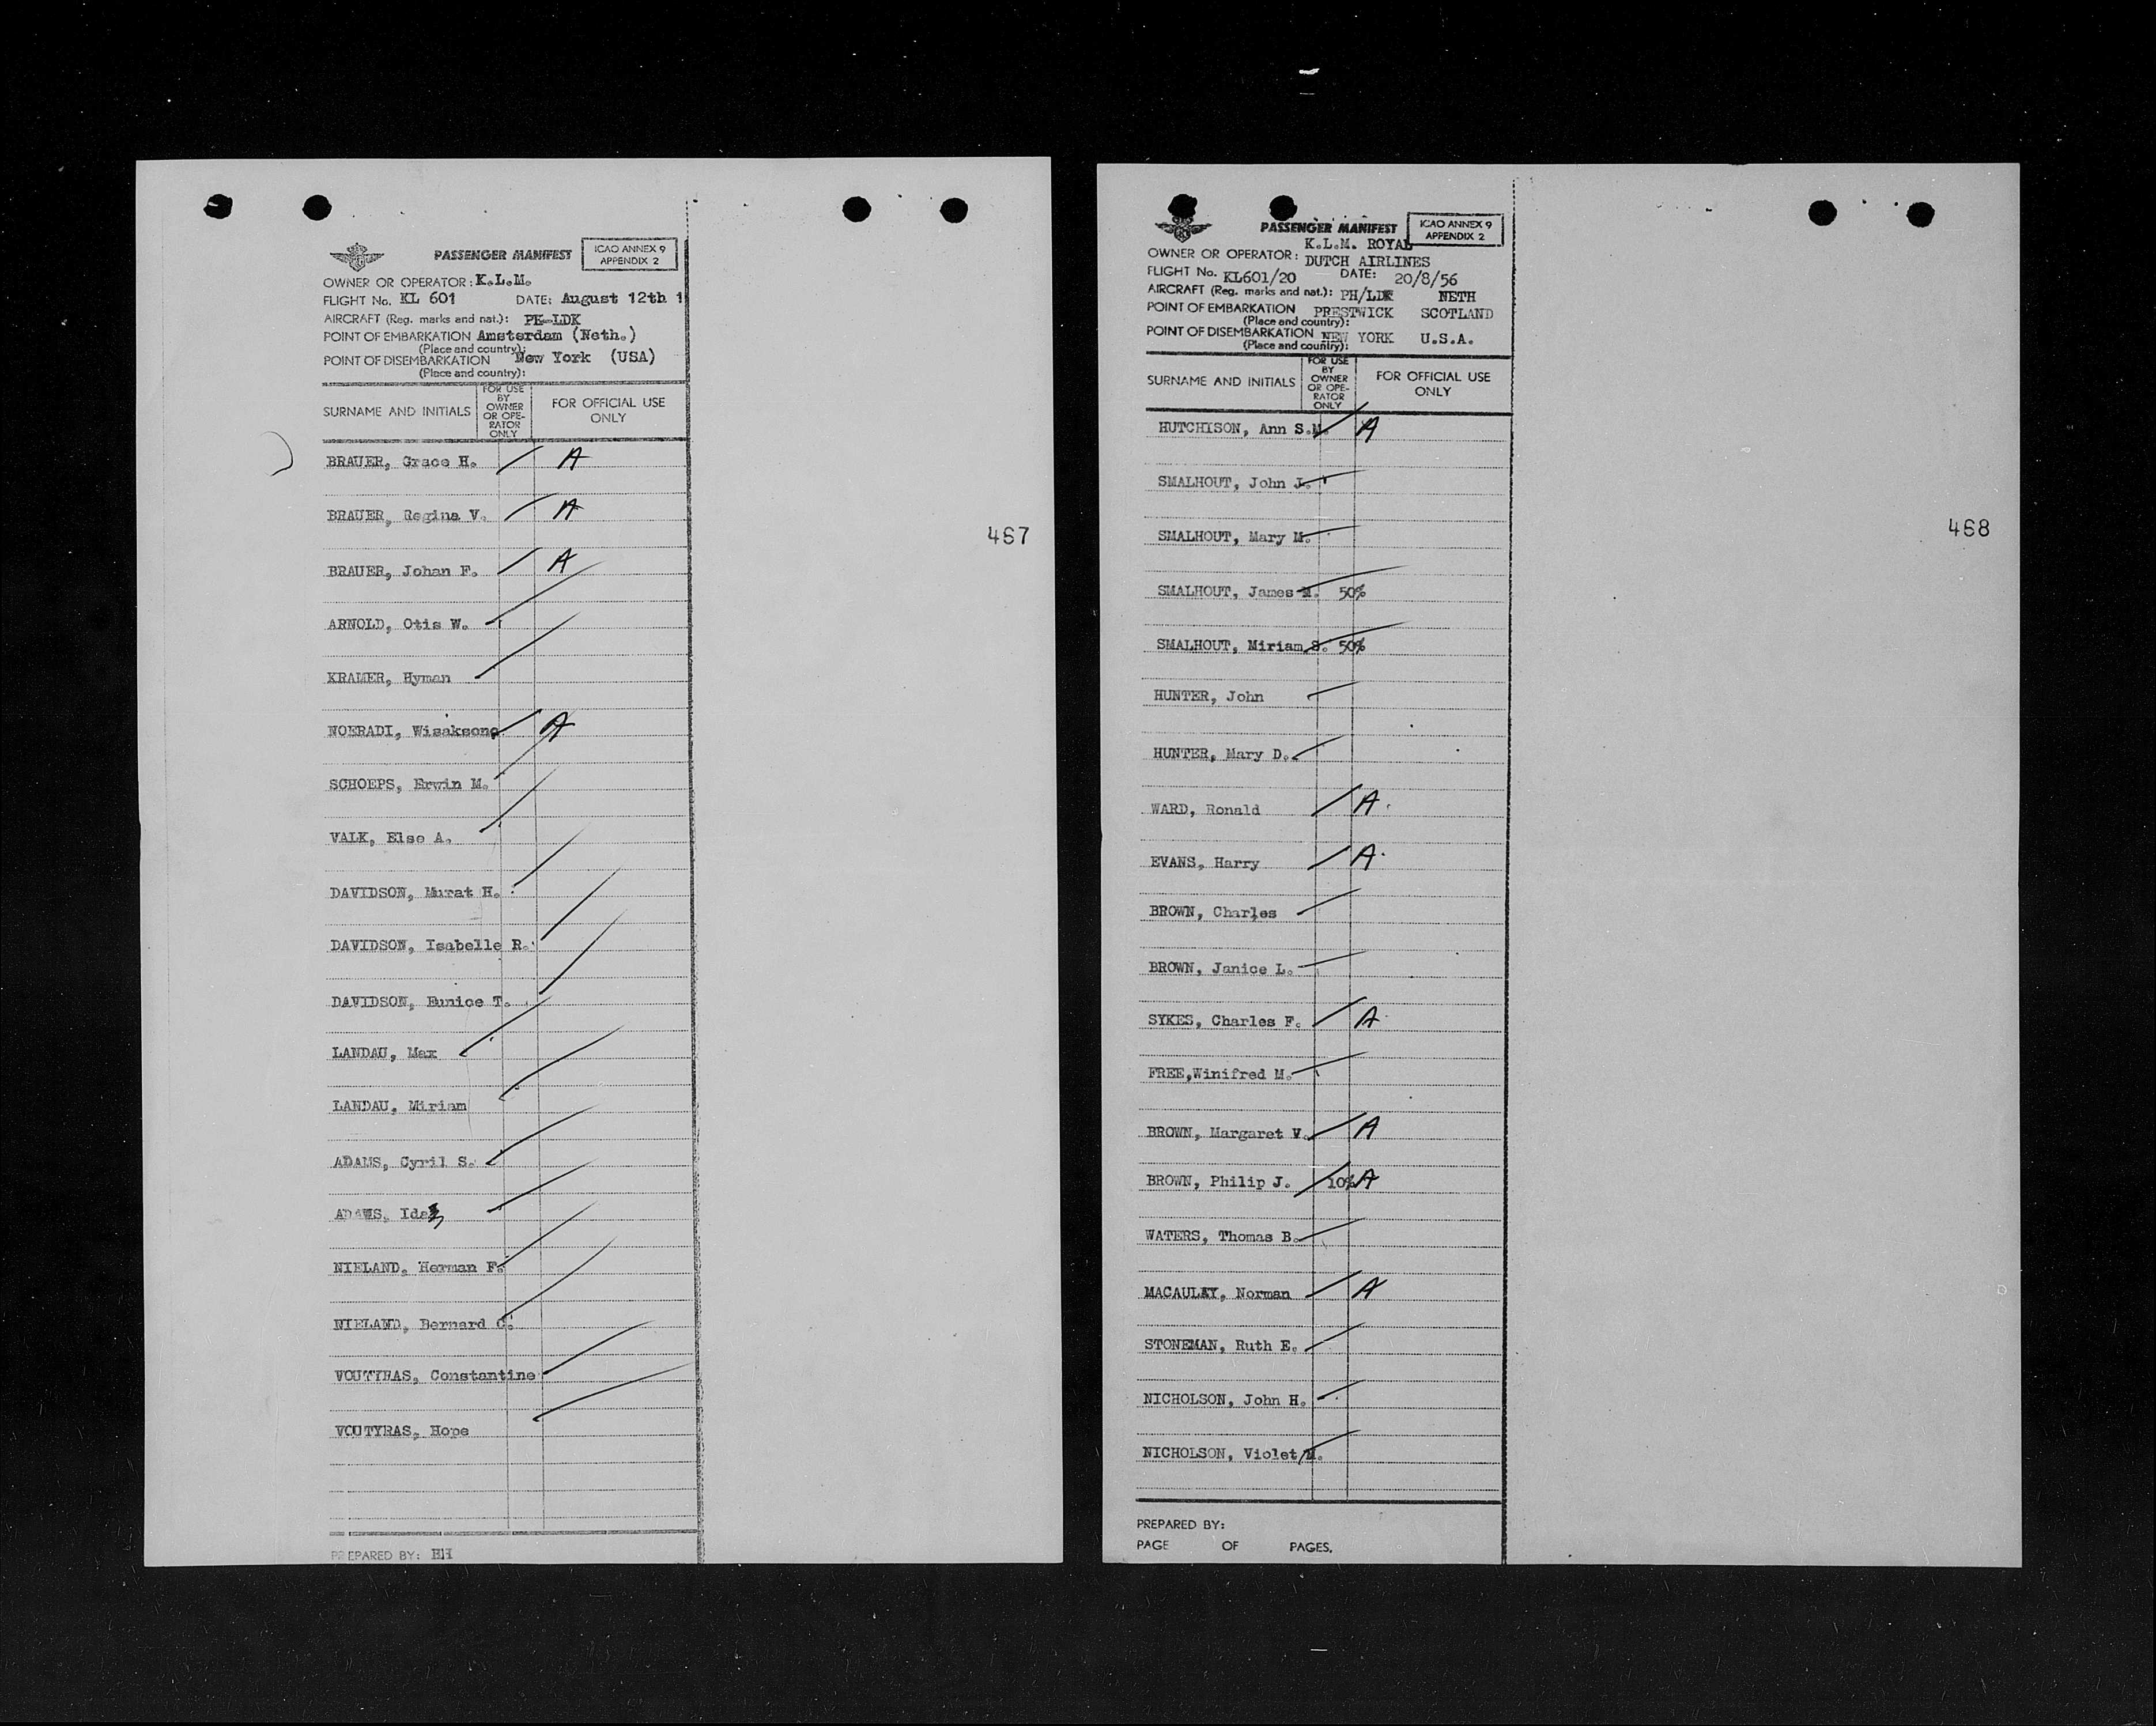 PASSENGER MANIFEST
ICAO ANNEX 9
APPENDIX 2
OWNER OR OPERATOR: K.L.M.
FLIGHT No. KL 601 DATE: August 12th 1
AIRCRAFT (Reg. marks and nat.): PH-LDK
POINT OF EMBARKATION Amsterdam (Neth.)
(Place and country):
POINT OF DISEMBARKATION New York (USA)
(Place and country):
SURNAME AND INITIALS
FOR USE
BY
OWNER
OR OPE-
RATOR
ONLY
FOR OFFICIAL USE
ONLY
BRAUER, Grace H. A
BRAUER, Regina V. A
BRAUER, Johan F. A
ARNOLD, Otis W.
KRAMER, Hyman
NOERADI, Wisaksono A
SCHOEPS, Erwin M.
VALK, Else A.
DAVIDSON, Murat H.
DAVIDSON, Isabelle R.
DAVIDSON, Eunice T.
LANDAU, Max
LANDAU, Miriam
ADAMS, Cyril S.
ADAMS, Ida
NIELAND, Herman F.
NIELAND, Bernard C.
VOUTYRAS, Constantine
VOUTYRAS, Hope
PREPARED BY: EH
467
PASSENGER MANIFEST
ICAO ANNEX 9
APPENDIX 2
K.L.M. ROYAL
OWNER OR OPERATOR: DUTCH AIRLINES
FLIGHT No. KL601/20 DATE: 20/8/56
AIRCRAFT (Reg. marks and nat.): PH/LDK NETH
POINT OF EMBARKATION PRESTWICK SCOTLAND
(Place and country):
POINT OF DISEMBARKATION NEW YORK U.S.A.
(Place and country):
SURNAME AND INITIALS
FOR USE
BY
OWNER
OR OPE-
RATOR
ONLY
FOR OFFICIAL USE
ONLY
HUTCHISON, Ann S.M. A
SMALHOUT, John J.
SMALHOUT, Mary M.
SMALHOUT, James M. 50%
SMALHOUT, Miriam S. 50%
HUNTER, John
HUNTER, Mary D.
WARD, Ronald A
EVANS, Harry A
BROWN, Charles
BROWN, Janice L.
SYKES, Charles F. A
FREE,Winifred M.
BROWN, Margaret V. A
BROWN, Philip J. 10% A
WATERS, Thomas B.
MACAULAY, Norman A
STONEMAN, Ruth E.
NICHOLSON, John H.
NICHOLSON, Violet M.
PREPARED BY:
PAGE OF PAGES.
468